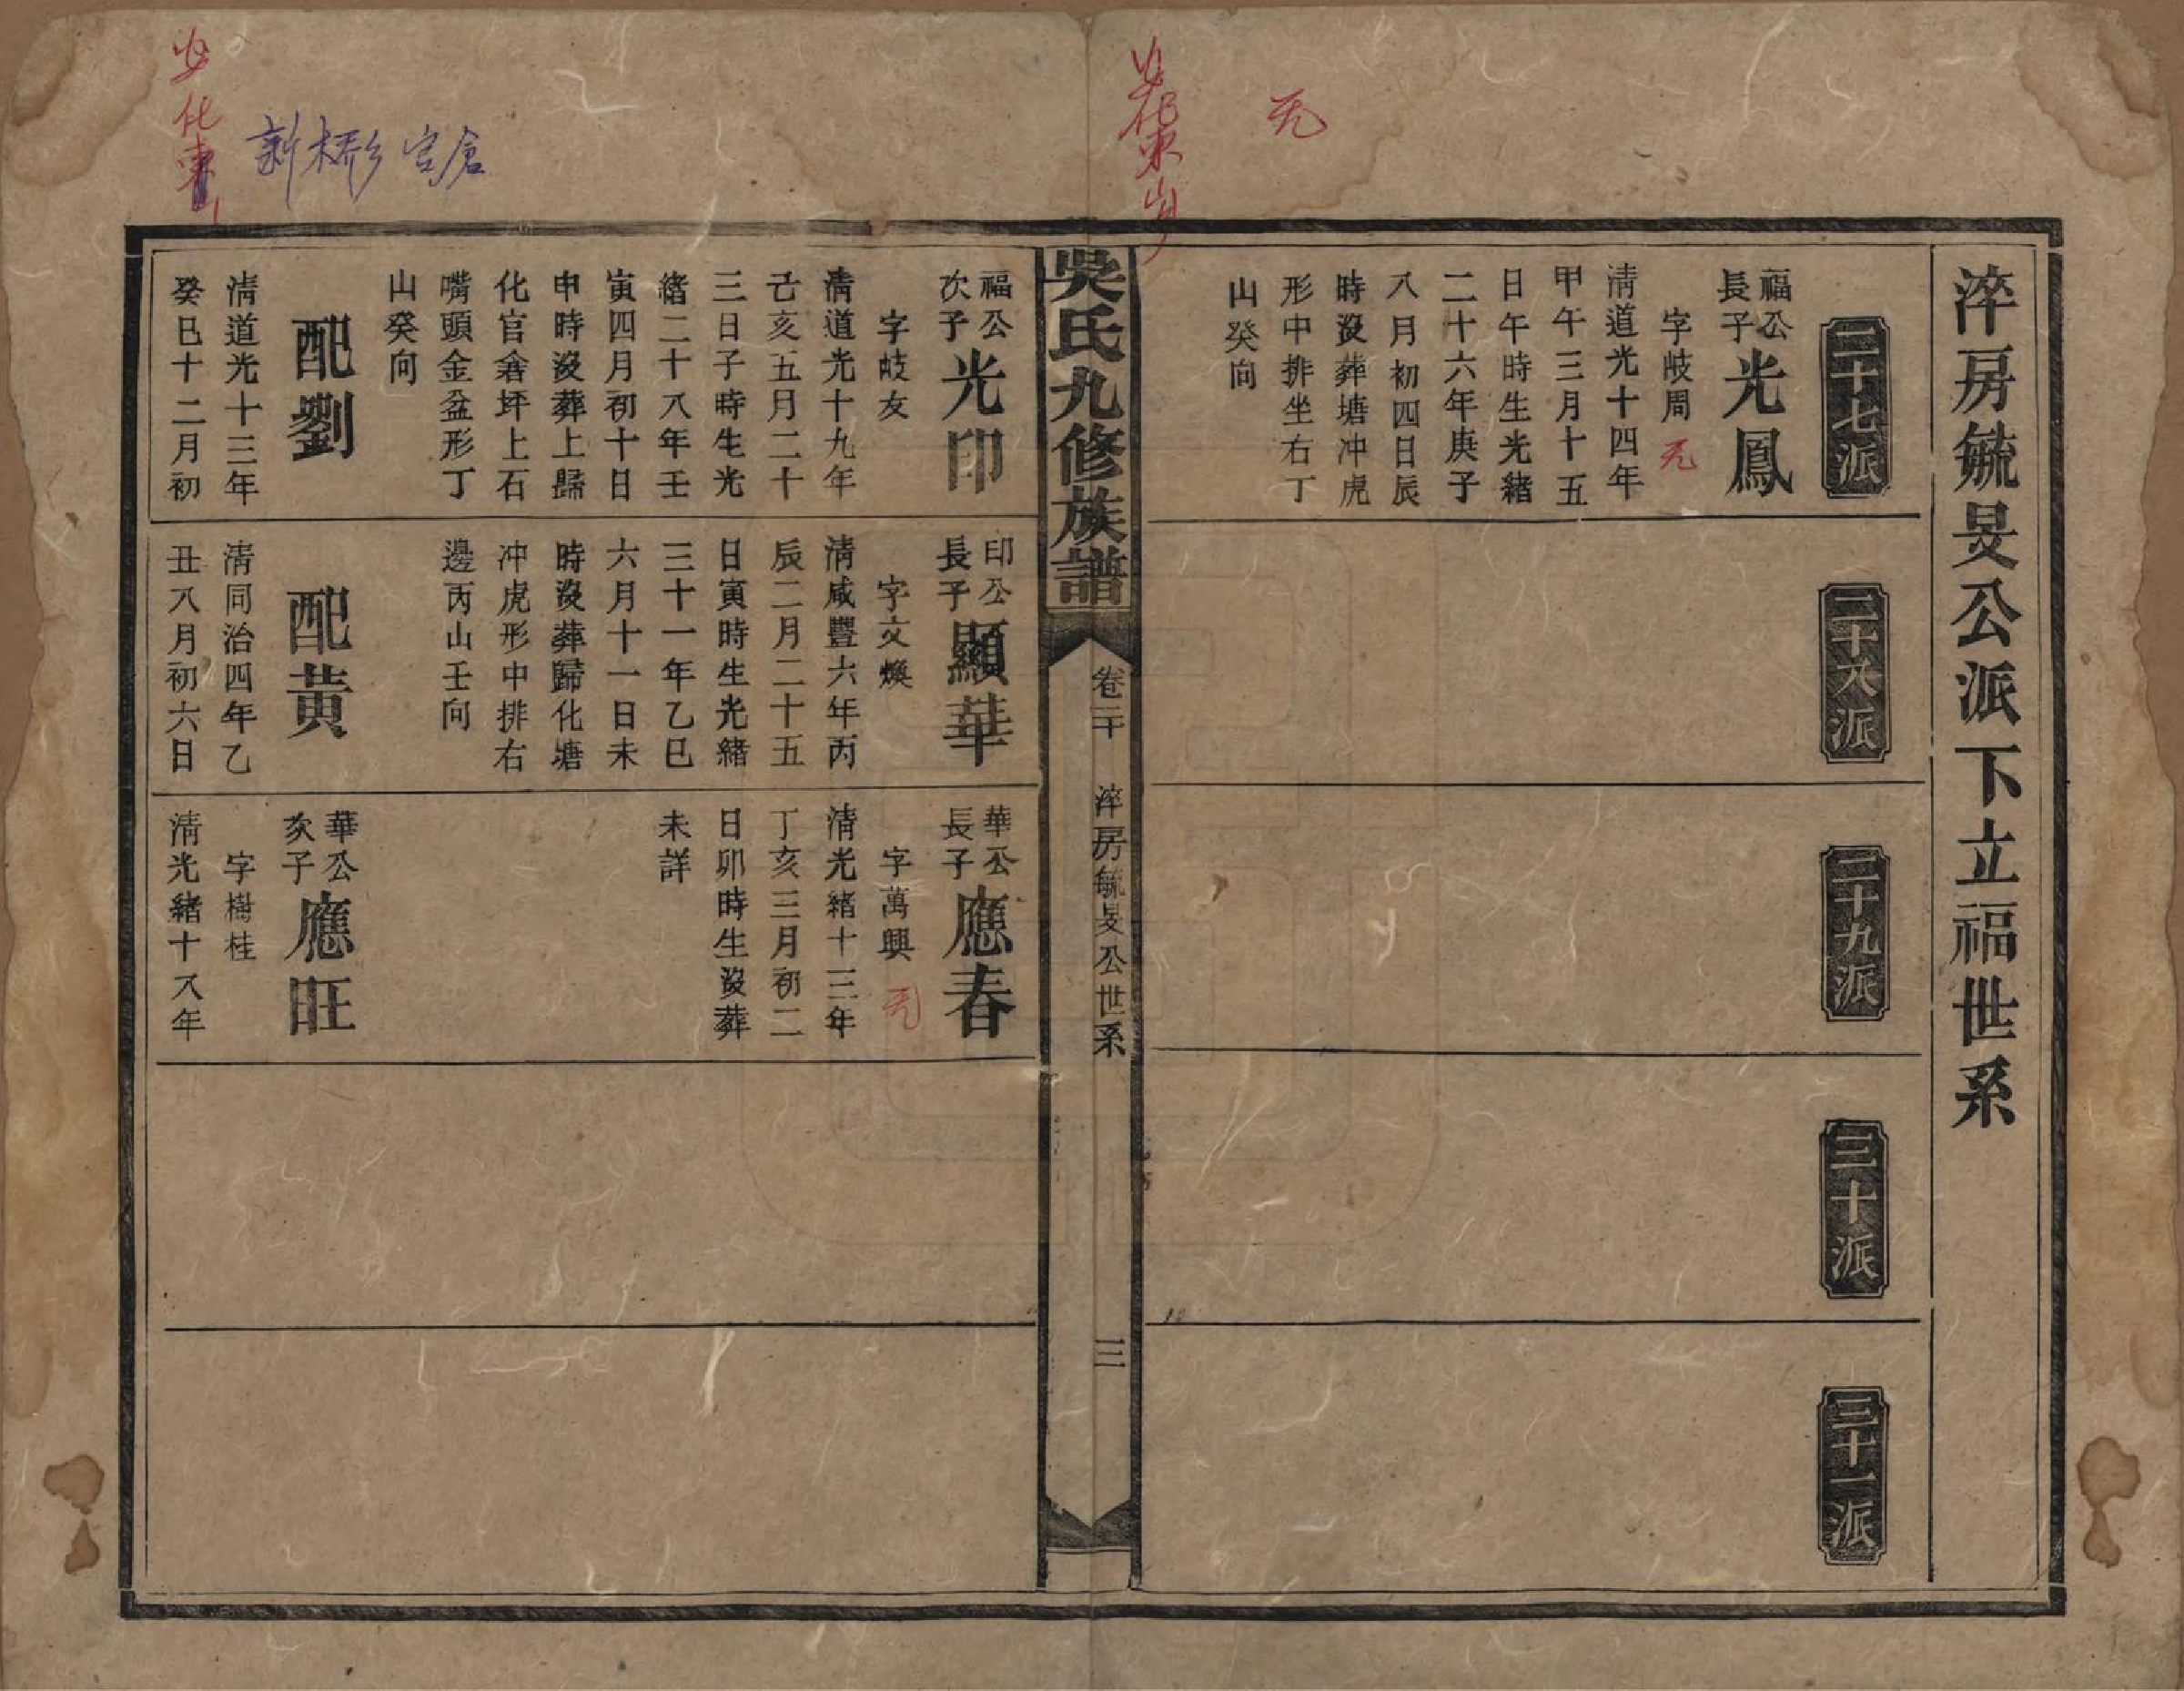 淬房毓旻公派下立福世系
二十七派
福公
長子
光鳳
字岐周
无
清道光十四年
甲午三月十五
日午時生光緒
二十六年庚子
八月初四日辰
時沒葬塘冲虎
形中排坐右丁
山癸向
二十八派
二十九派
三十派
三十一派
无
安化東山
吳氏九修族譜
卷二十
淬房毓旻公世系
三
福公
次子
光印
字岐友
清道光十九年
己亥五月二十
三日子時生光
緒二十八年壬
寅四月初十日
申時沒葬上歸
化官倉坪上石
嘴頭金盆形丁
山癸向
配劉
清道光十三年
癸巳十二月初
印公
長子
顯華
字文煥
清咸豐六年丙
辰二月二十五
日寅時生光緒
三十一年乙巳
六月十一日未
時沒葬歸化塘
冲虎形中排右
邊丙山壬向
配黃
清同治四年乙
丑八月初六日
華公
長子
應春
字萬興
无
清光緒十三年
丁亥三月初二
日卯時生沒葬
未詳
華公
次子
應旺
字樹桂
清光緒十八年
新桥乡官倉
安化東山